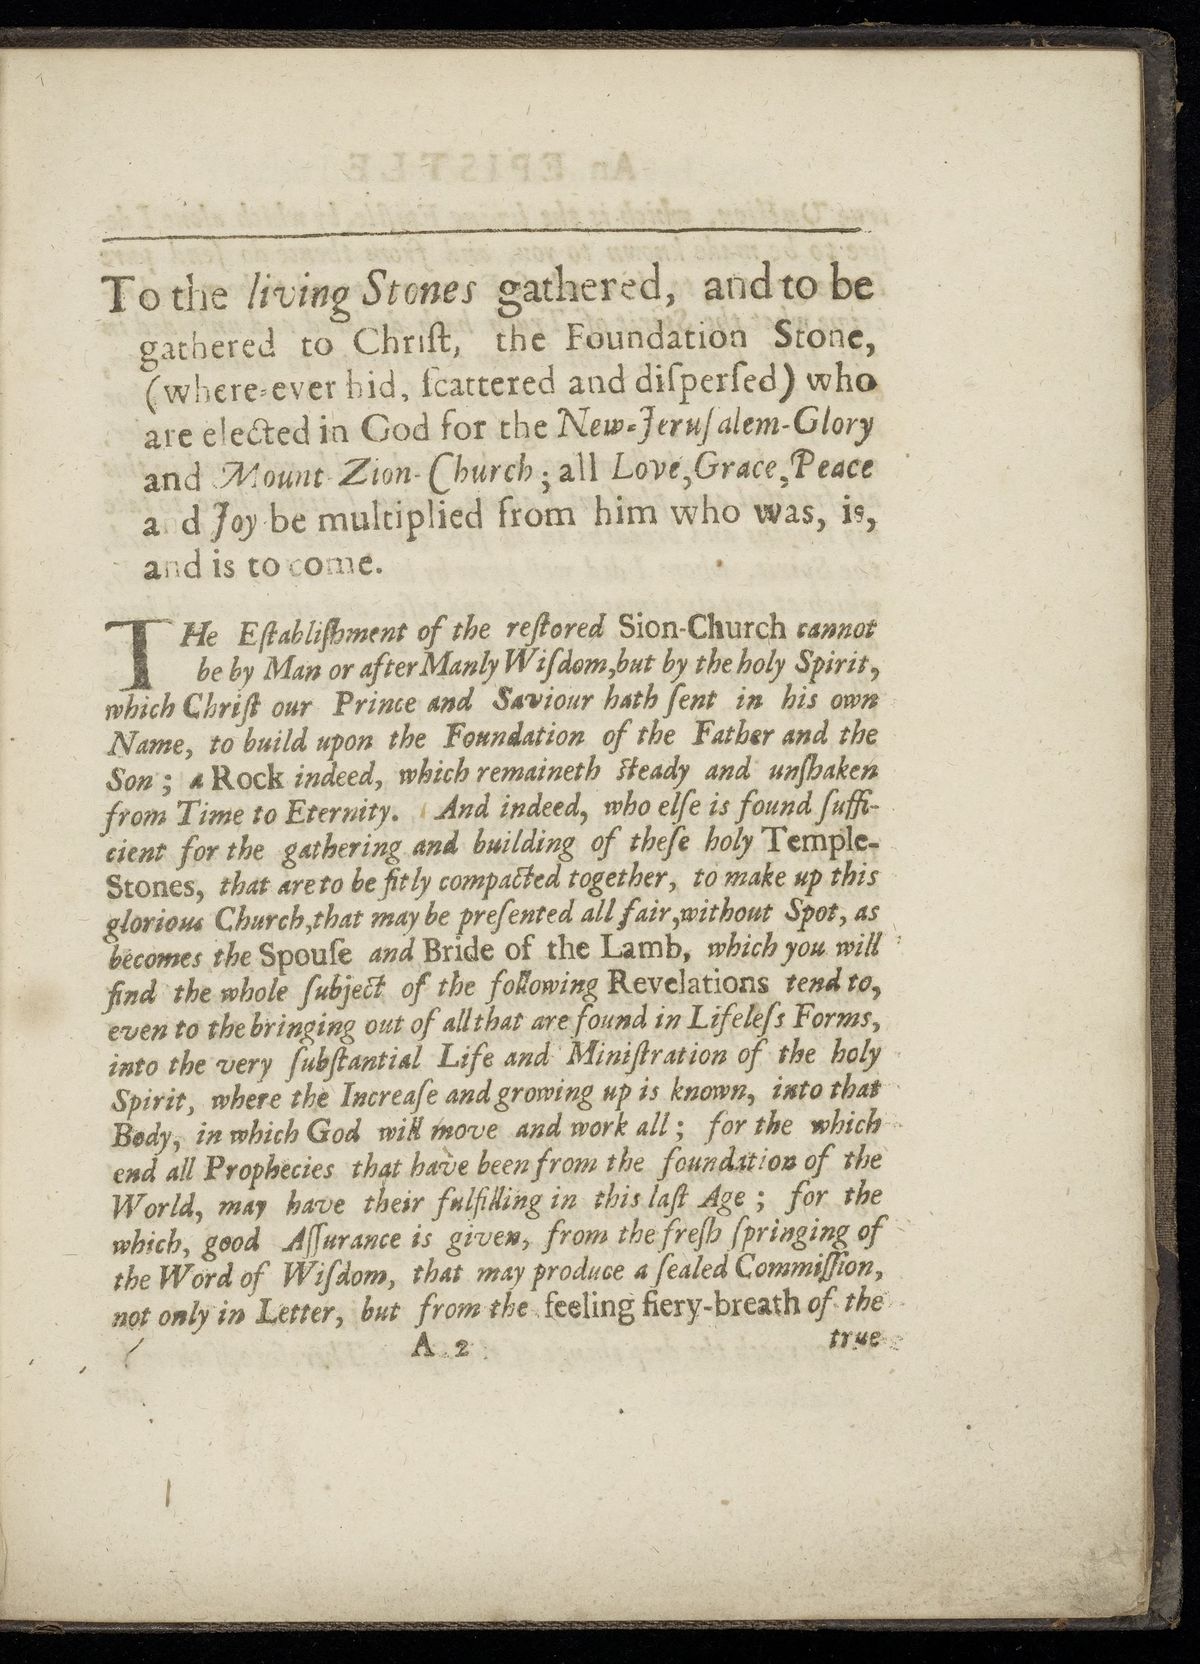 To the living Stones gathered, and to be
gathered to Chriſt, the Foundation Stone,
(where-ever hid, ſcattered and diſperſed) who
are elected in God for the New-Jeruſalem-Glory
and Mount-Zion-Church; all Love, Grace, Peace
and Joy be multiplied from him who was, is,
and is to come.
THe Eſtabliſhment of the reſtored Sion-Church cannot
be by Man or after Manly Wiſdom, but by the holy Spirit,
which Chriſt our Prince and Saviour hath ſent in his own
Name, to build upon the Foundation of the Father and the
Son; a Rock indeed, which remaineth ſteady and unſhaken
from Time to Eternity. And indeed, who elſe is found ſuffi-
cient for the gathering and building of theſe holy Temple-
Stones, that are to be fitly compacted together, to make up this
glorious Church, that may be preſented all fair, without Spot, as
becomes the Spouſe and Bride of the Lamb, which you will
find the whole ſubject of the following Revelations tend to,
even to the bringing out of all that are found in Lifeleſs Forms,
into the very ſubſtantial Life and Miniſtration of the holy
Spirit, where the Increaſe and growing up is known, into that
Body, in which God will move and work all; for the which
end all Prophecies that have been from the foundation of the
World, may have their fulfilling in this laſt Age; for the
which, good Aſſurance is given, from the freſh ſpringing of
the Word of Wiſdom, that may produce a ſealed Commiſſion,
not only in Letter, but from the feeling fiery-breath of the
A 2 true